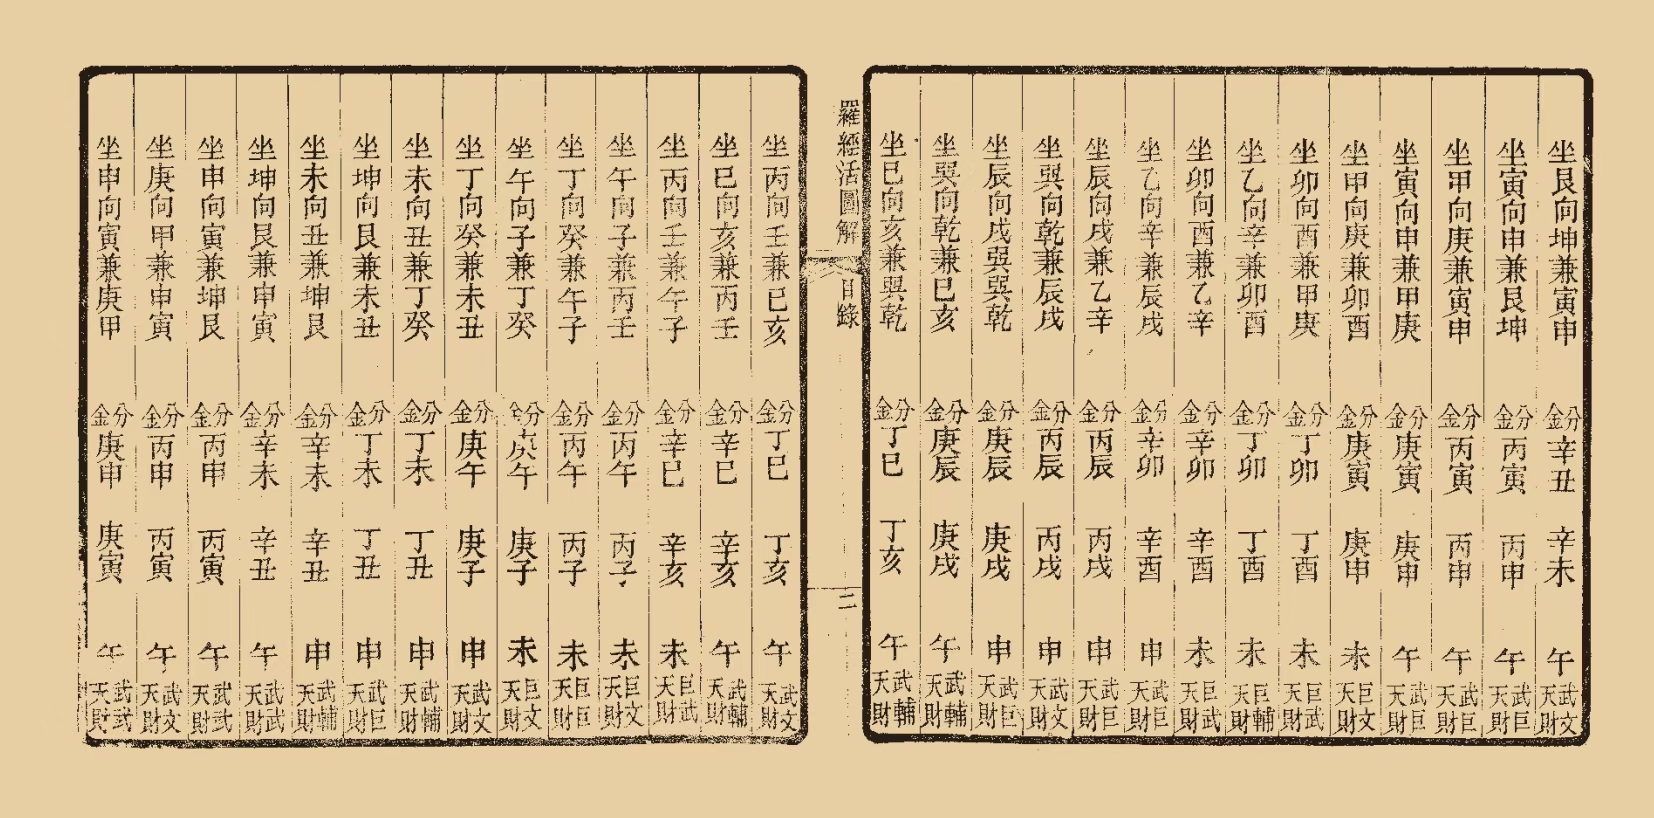 坐艮向坤兼寅申 分金辛丑 辛未 午 武文天財
坐寅向申兼艮坤 分金丙寅 丙申 午 武巨天財
坐甲向庚兼寅申 分金丙寅 丙申 午 武巨天財
坐寅向申兼甲庚 分金庚寅 庚申 午 武巨天財
坐甲向庚兼卯酉 分金庚寅 庚申 未 巨文天財
坐卯向酉兼甲庚 分金丁卯 丁酉 未 巨武天財
坐乙向辛兼卯酉 分金丁卯 丁酉 未 巨輔天財
坐卯向酉兼乙辛 分金辛卯 辛酉 未 巨武天財
坐乙向辛兼辰戌 分金辛卯 辛酉 申 武巨天財
坐辰向戌兼乙辛 分金丙辰 丙戌 申 武巨天財
坐巽向乾兼辰戌 分金丙辰 丙戌 申 武文天財
坐辰向戌巽巽乾 分金庚辰 庚戌 申 武巨天財
坐巽向乾兼巳亥 分金庚辰 庚戌 午 武輔天財
坐巳向亥兼巽乾 分金丁巳 丁亥 午 武輔天財
羅經活圖解 目錄 二
坐丙向壬兼巳亥 分金丁巳 丁亥 午 武文天財
坐巳向亥兼丙壬 分金辛巳 辛亥 午 武輔天財
坐丙向壬兼午子 分金辛巳 辛亥 未 巨武天財
坐午向子兼丙壬 分金丙午 丙子 未 巨文天財
坐丁向癸兼午子 分金丙午 丙子 未 巨巨天財
坐午向子兼丁癸 分金庚午 庚子 未 巨文天財
坐丁向癸兼未丑 分金庚午 庚子 申 武文天財
坐未向丑兼丁癸 分金丁未 丁丑 申 武輔天財
坐坤向艮兼未丑 分金丁未 丁丑 申 武巨天財
坐未向丑兼坤艮 分金辛未 辛丑 申 武輔天財
坐坤向艮兼申寅 分金辛未 辛丑 午 武武天財
坐申向寅兼坤艮 分金丙申 丙寅 午 武武天財
坐庚向甲兼申寅 分金丙申 丙寅 午 武文天財
坐申向寅兼庚甲 分金庚申 庚寅 午 武武天財